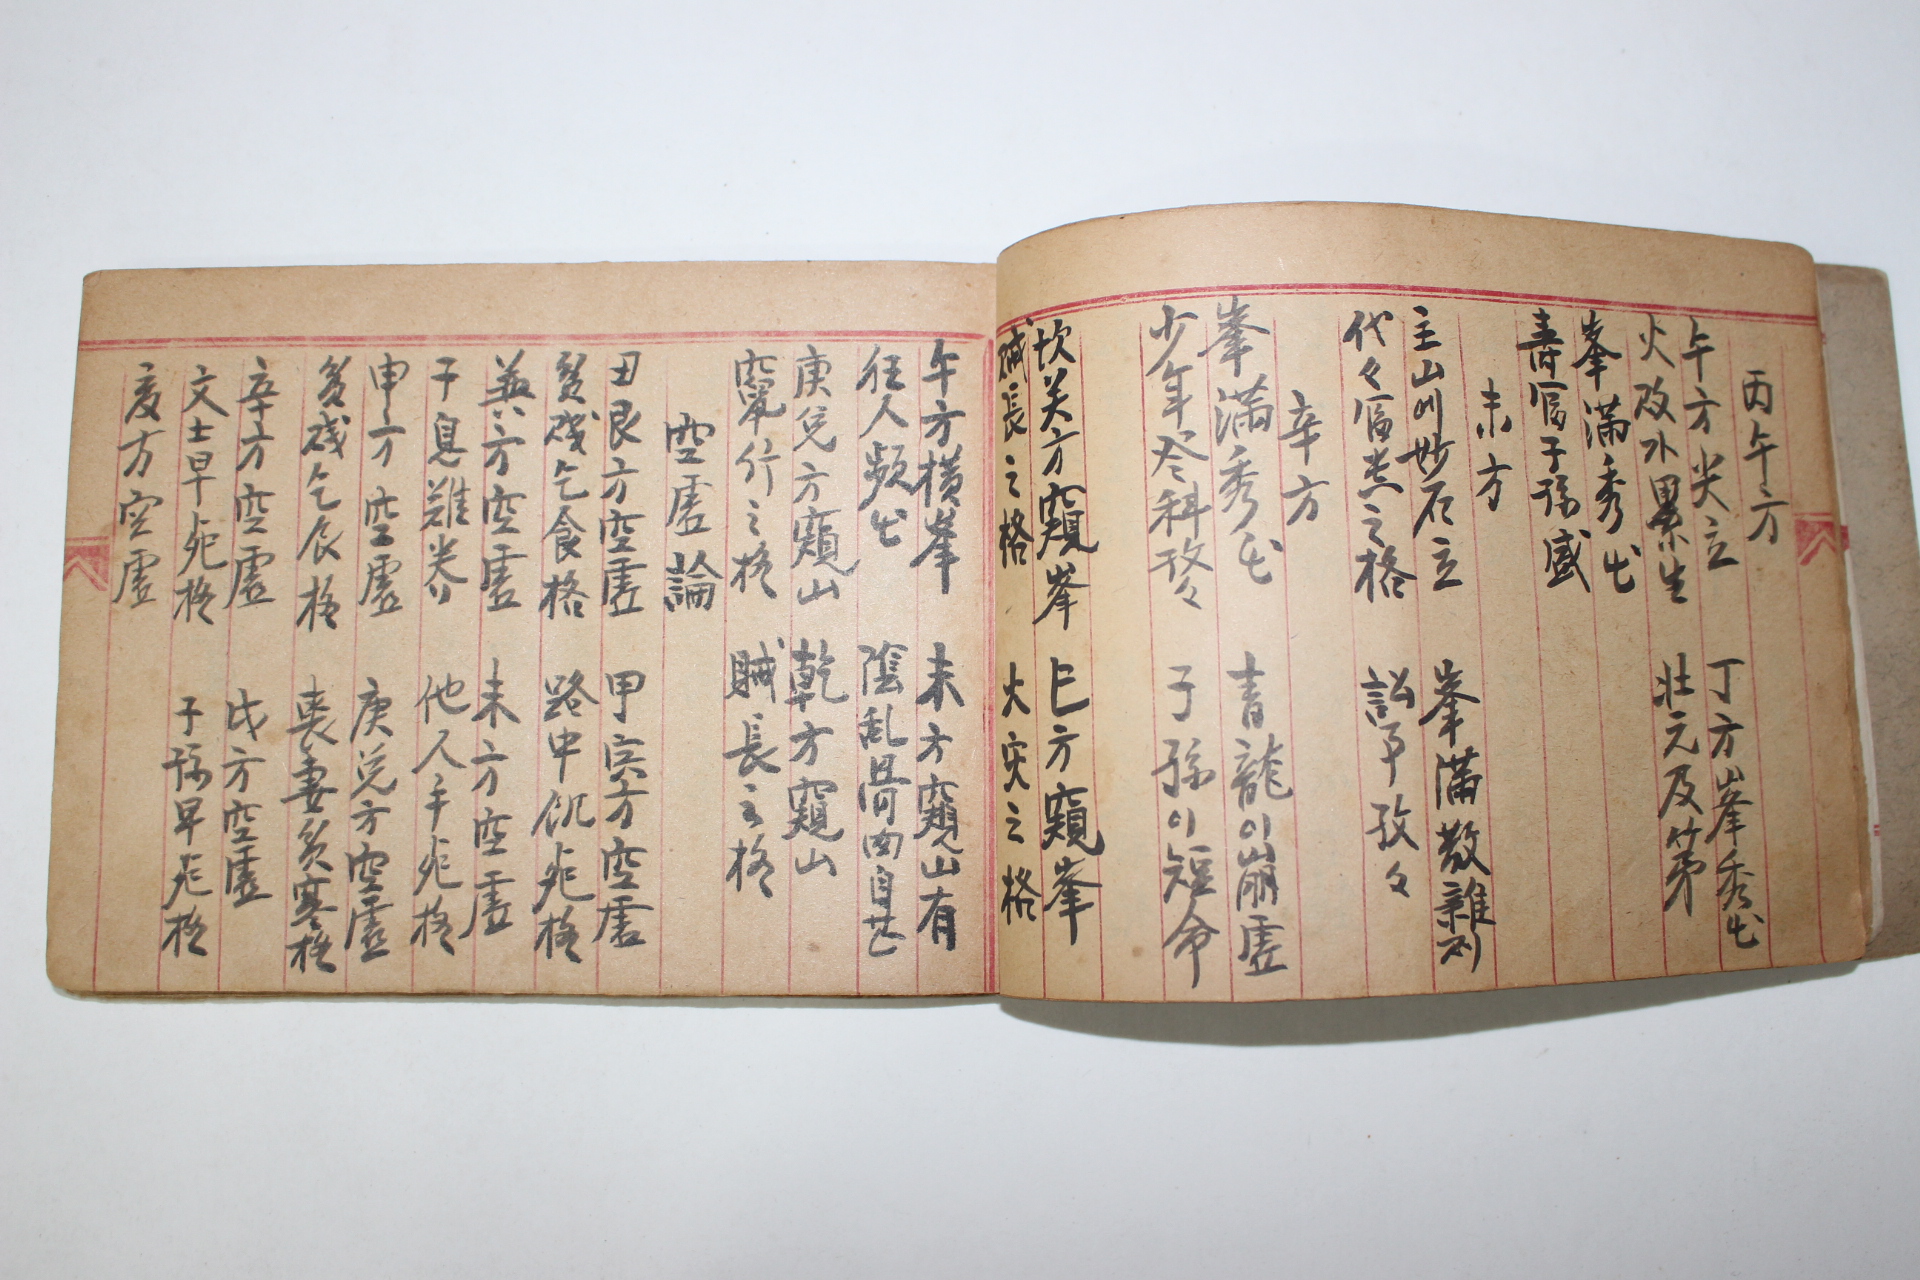 丙午方
午方尖立 丁方峯秀出
火改外累生 壯元及第
峯滿秀出
壽富子孫盛
未方
主山이妙石立 峯滿散雜하
代々富貴之格 訟爭孜々
辛方
峯滿秀出 青龍이崩虛
少年登科孜々 子孫이短命
坎癸方窺峯 巳方窺峯
賊長之格 火災之格
午方橫峯 未方窺山有
狂人頻出 陰乱
庚兌方窺山 乾方窺山
竊行之格 賊長之格
空虛論
丑艮方空虛 甲寅方空虛
貧殘乞食格 路中飢死格
巽方空虛 未方空虛
子息難養 他人手死格
申方空虛 庚兌方空虛
貧殘乞食格 喪妻貧寒格
辛方空虛 戌方空虛
文士早死格 子孫早死格
亥方空虛